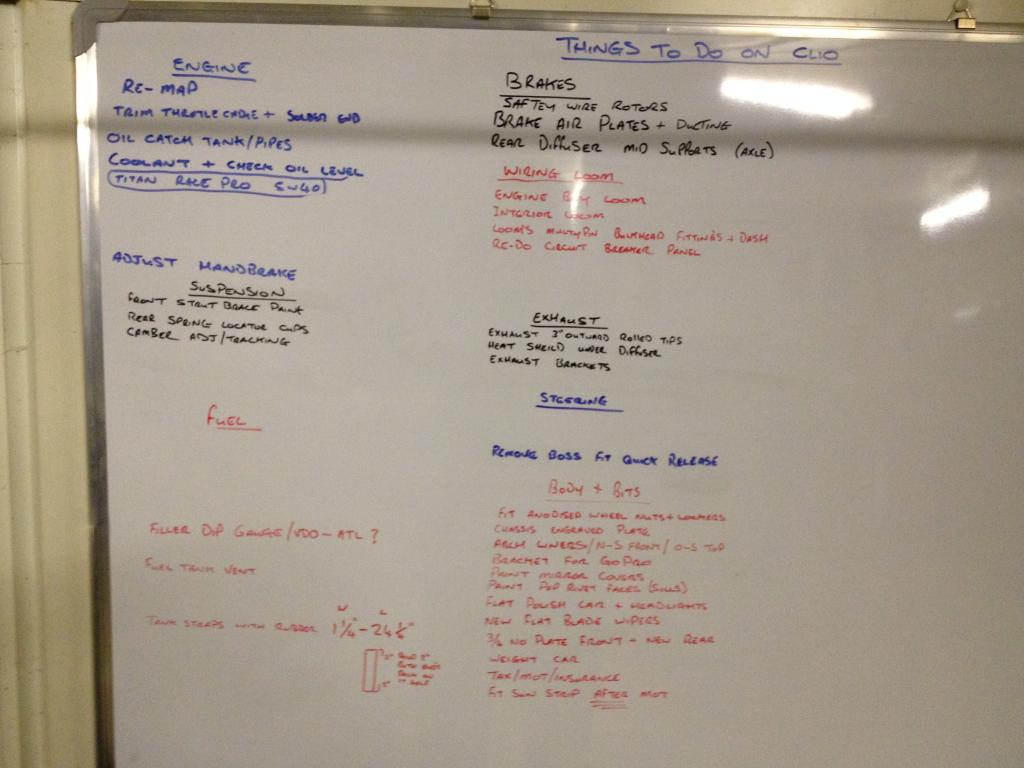 THINGS TO DO ON CLIO
ENGINE
RE-MAP
TRIM THROTTLE CABLE + SOLDER END
OIL CATCH TANK/PIPES
COOLANT + CHECK OIL LEVEL
TITAN RACE PRO 5W40
ADJUST HANDBRAKE
SUSPENSION
FRONT STRUT BRACE PAINT
REAR SPRING LOCATOR CUPS
CAMBER ADJ/TRACKING
FUEL
FILLER DIP GAUGE/VDO-ATL?
FUEL TANK VENT
W L
TANK STRAPS WITH RUBBER 1 1/4" - 24 1/2"
BRAKES
SAFTEY WIRE ROTORS
BRAKE AIR PLATES + DUCTING
REAR DIFFUSER MID SUPPORTS (AXLE)
WIRING LOOM
ENGINE BAY LOOM
INTERIOR LOOM
LOOMS MULTYPIN BULKHEAD FITTINGS + DASH
RE-DO CIRCUIT BREAKER PANEL
EXHAUST
EXHAUST 3" OUTWARD ROLLED TIPS
HEAT SHEILD UNDER DIFFUSER
EXHAUST BRACKETS
STEERING
REMOVE BOSS FIT QUICK RELEASE
BODY + BITS
FIT ANODISED WHEEL NUTS + LOCKERS
CHASSIS ENGRAVED PLATE
ARCH LINERS/N-S FRONT/O-S TOP
BRACKET FOR GOPRO
PAINT MIRROR COVERS
PAINT POP RIVET FACES (SILLS)
FLAT POLISH CAR + HEADLIGHTS
NEW FLAT BLADE WIPERS
3/4 NO PLATE FRONT + NEW REAR
WEIGHT CAR
TAX/MOT/INSURANCE
FIT SUN STRIP AFTER MOT